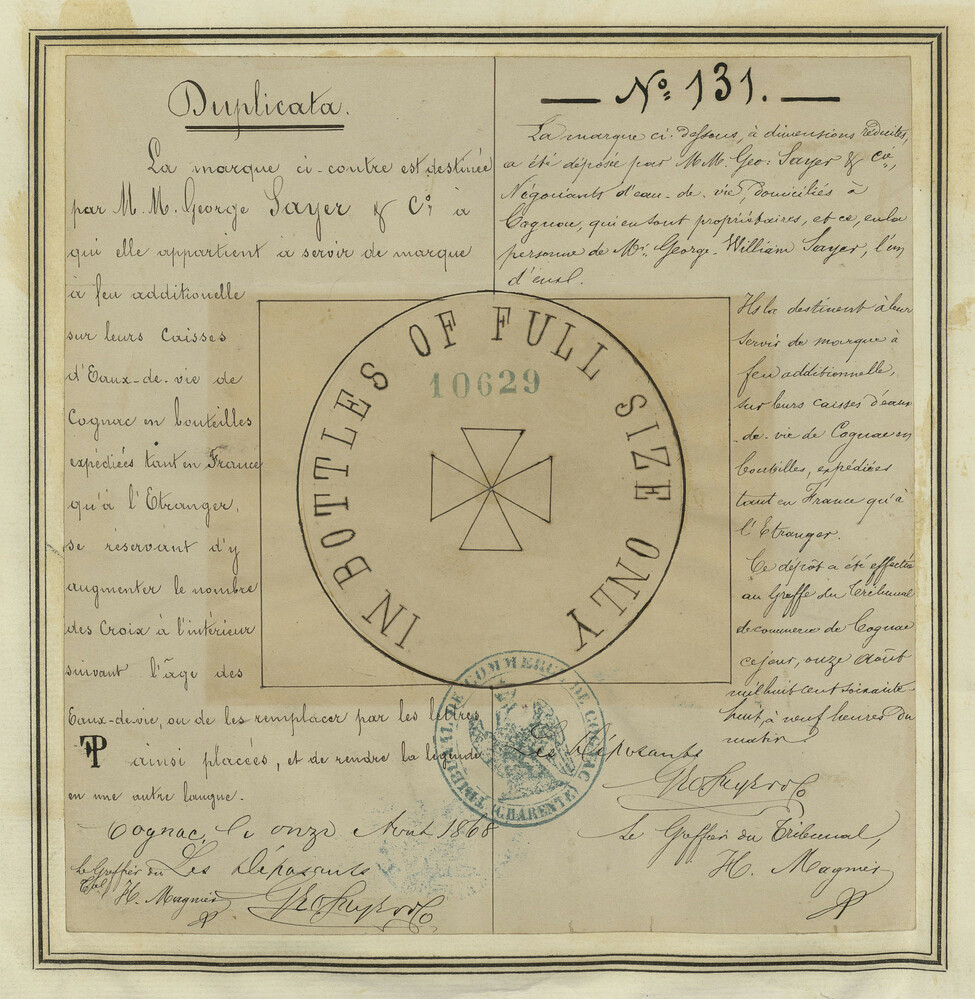 Duplicata.
La marque ci-contre est destinée
par M. M. George Sayer & Co. à
qui elle appartient à servir de marque
à feu additionelle
sur leurs Caisses
d'Eaux-de-vie de
Cognac en bouteilles
expédiées tant en France
qu'à l'Etranger,
se réservant d'y
augmenter le nombre
des Croix à l'intérieur
suivant l'âge des
Eaux-de-vie, ou de les remplacer par les lettres
TP ainsi placées, et de rendre la légende
en une autre langue.
Cognac, le onze Août 1868
Les Déposants
Le Greffier du
Tbal H. Magnier
Geo Sayer & Co
No 131.
La marque ci-dessous, à dimensions réduites,
a été déposée par M M. Geo: Sayer & Cie,
Négociants d'eau-de-vie, domiciliés à
Cognac, qui en sont propriétaires, et ce, en la
personne de Mr. George William Sayer, l'un
d'eux.
Ils la destinent à leur
servir de marque à
feu additionnelle,
sur leurs caisses d'eaux
-de-vie de Cognac en
bouteilles, expédiées
tant en France qu'à
l'Etranger.
Ce dépôt a été effectué
au Greffe du Tribunal
de commerce de Cognac
ce jour, onze Août
mil huit cent soixante
huit, à neuf heures du
matin.
Les Déposants
Geo Sayer & Co
Le Greffier du Tribunal,
H. Magnier
IN BOTTLES OF FULL SIZE ONLY
10629
TRIBUNAL DE COMMERCE DE COGNAC
(CHARENTE)